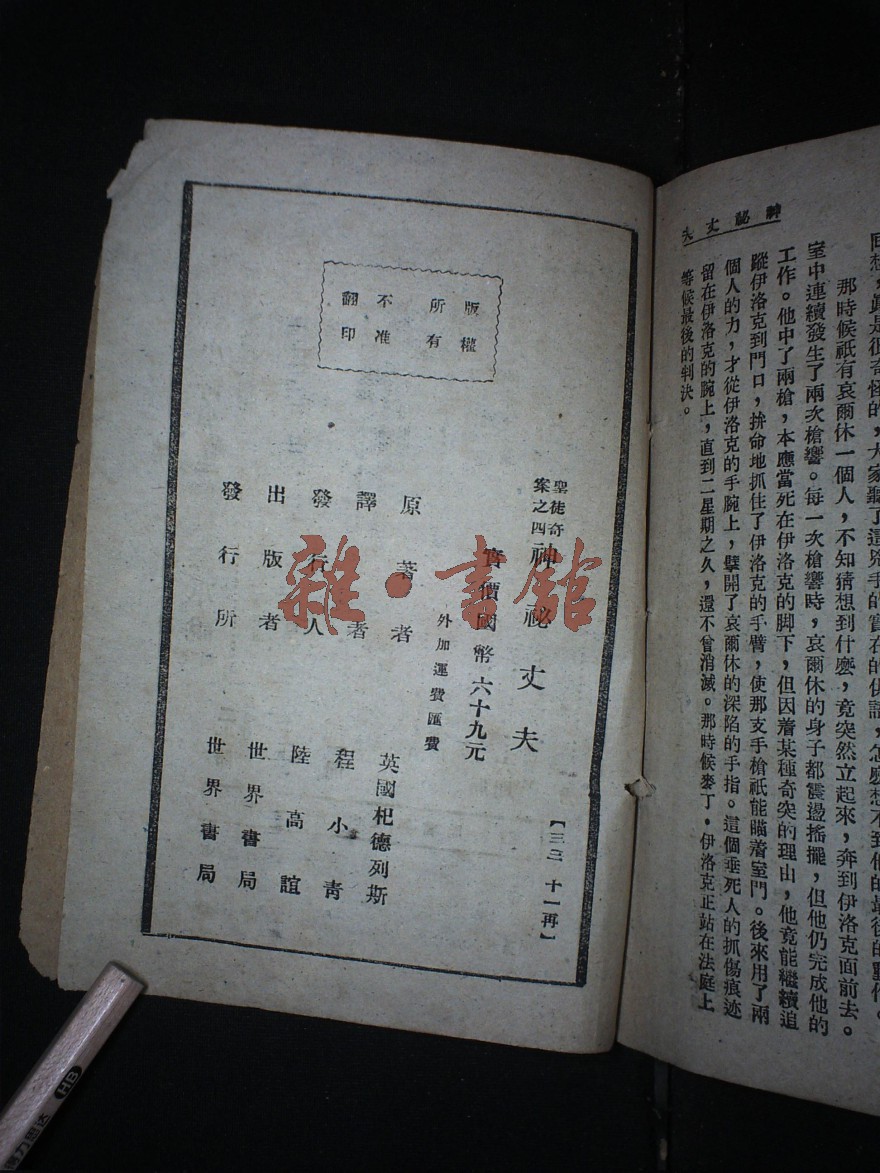 神祕丈夫
回想，真是很奇怪的，大家聽了這兇手的實在的供詞，怎麽想不到他的最後的動作。
那時候祇有哀爾休一個人，不知猜想到什麽，竟突然立起來，奔到伊洛克面前去。
室中連續發生了兩次槍響。每一次槍響時，哀爾休的身子都震盪搖擺，但他仍完成他的
工作。他中了兩槍，本應當死在伊洛克的脚下，但因着某種奇突的理由，他竟能繼續追
蹤伊洛克到門口，拚命地抓住了伊洛克的手臂，使那支手槍祇能瞄着室門。後來用了兩
個人的力，才從伊洛克的手腕上，擘開了哀爾休的深陷的手指。這個垂死人的抓傷痕迹
留在伊洛克的腕上，直到二星期之久，還不曾消滅。那時候麥丁·伊洛克正站在法庭上
等候最後的判決。
版權所有
不准翻印
【三三 十一再】
聖徒奇案之四 神祕丈夫
實價國幣六十九元
外加運費匯費
原著者 英國杞德列斯
譯者 程小青
發行人 陸高誼
出版者 世界書局
發行所 世界書局
雜·書館
HB